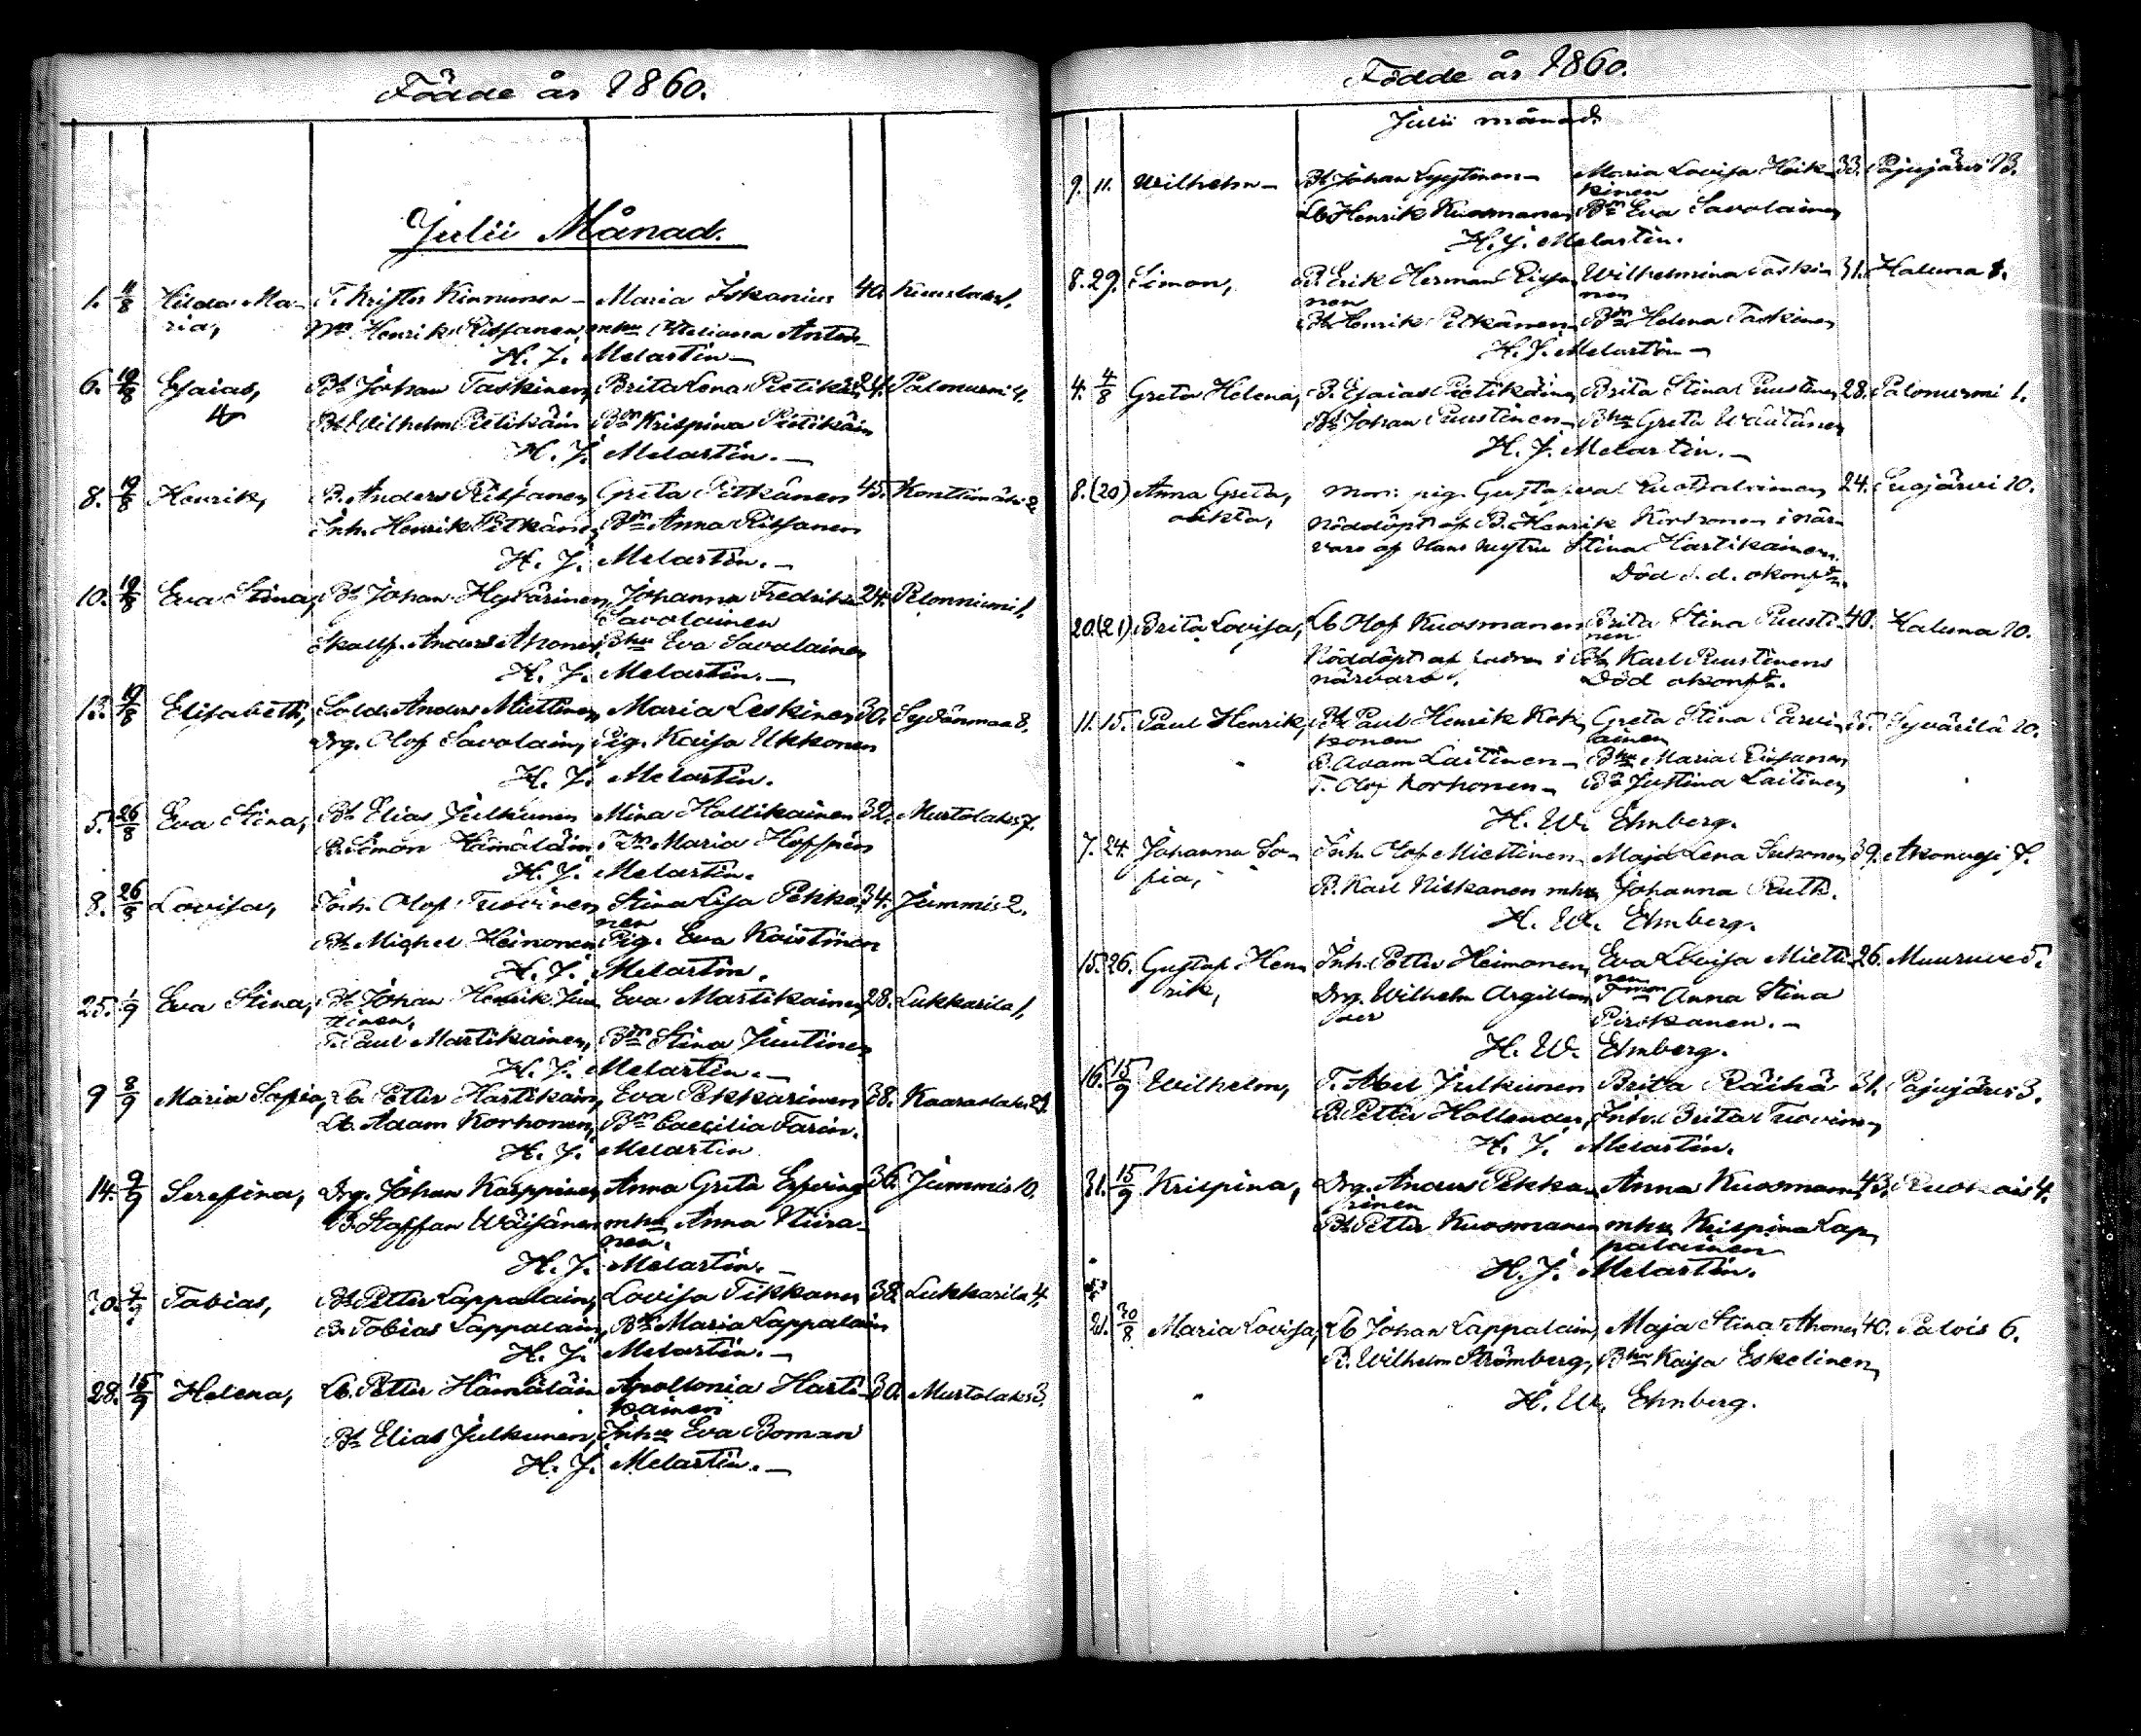 Födde år 1860.
Julii Månad.
1. 11/8 Hilda Ma- T. Krister Kinnunen - Maria Iskanius 40. Kuuslaks 1.
ria, Henrik Ritsanen, mhu Anton-
H. J. Melartin -
6. 19/8 Esaias, Bd Johan Taskinen, Brita Lena Pietikäi 24. Palonurmi 4.
Bd Wilhelm Pietikäin Bdn Krispina Pietikäin
H. J. Melartin. -
8. 19/8 Henrik, B. Anders Ritsanen, Greta Pitkänen 45. Konttimäki 2
Inh. Henrik Pitkänen, Bdn Anna Ritsanen
H. J. Melartin. -
10. 19/8 Eva Stina, Bd Johan Hyvärinen, Johanna Fredrika 24. Pelonniemi 1.
Savolainen
Skattf. Anders Ahonen, Bhu Eva Savolainen
H. J. Melartin. -
13. 19/8 Elisabeth, Sold. Anders Miettinen, Maria Leskinen 30. Sydänmaa 8.
Drg. Olof Savolain, Pig. Kaisa Ukkonen
H. J. Melartin.
5. 26/8 Eva Stina, Bd Elias Julkunen Mina Hallikainen 32. Murtolaks 7.
B. Simon Hämäläin, Maria Hoffrén
H. J. Melartin.
8. 26/8 Lovisa, Inh. Olof Tuovinen, Stina Lisa Pekka 34. Jummis 2.
nen
Bd Michel Heinonen, Pig. Eva Kaistinen
H. J. Melartin.
25. 1/9 Eva Stina, Bd Johan Henrik Juu Eva Martikainen, 28. Lukkarila 1.
tinen,
T. Paul Martikainen, Bdn Stina Juutinen
H. J. Melartin. -
9 8/9 Maria Sofia, Lb Petter Hartikain, Eva Pekkarinen 38. Kaaraslaks 29.
Lb. Adam Korhonen, Bdn Caecilia Farin.
H. J. Melartin
14. 9/9 Serefina, Drg. Johan Karppinen, Anna Greta Erfving 36. Jummis 10.
B. Staffan Wäisänen mhu Anna Niira-
nen.
H. J. Melartin. -
30. 9/9 Tobias, Bd Petter Lappalain, Lovisa Tikkanen 38. Lukkarila 4.
B. Tobias Lappalain, Bdn Maria Lappalain
H. J. Melartin. -
28. 15/9 Helena, Lb. Petter Hämäläin Apollonia Harti- 30. Murtolaks 3.
kainen
Bd Elias Julkunen, Inhu Eva Boman
H. J. Melartin. -
Födde år 1860.
Julii månad.
9. 11. Wilhelm - Bd Johan Lyytinen - Maria Lovisa Heik- 33. Pajujärvi 13.
kinen
Lb Henrik Kuosmanen, Bdn Eva Savolainen
H. J. Melartin.
8. 29. Simon, B. Erik Herman Wilhelmina Taskin 31. Haluna 1.
nen nen
Bd Henrik Pitkänen Bdn Helena Taskinen
H. J. Melartin -
4. 4/8 Greta Helena, B. Esaias Pietikäinen Brita Stina Puustinen 28. Palonurmi 1.
Bd Johan Puustinen - Bhu Greta Väätäinen
H. J. Melartin. -
8. (20) Anna Greta, mor: pig. Gustafva Ruotsalainen 24. Luojärvi 10.
oäkta, Nöddöpt af B. Henrik Korhonen i när-
varo af Hans hustru Stina Hartikainen.
Död s. d. okonf.
20. (21) Brita Lovisa, Lb Olof Kuosmanen Brita Stina Puusti- 40. Haluna 10.
nen
Nöddöpt af fadren i Bd Karl Puustinens
närvaro. Död okonf.
11. 15. Paul Henrik, Bd Paul Henrik Kok- Greta Stina Parvi- 35. Syvärilä 20.
konen ainen
B. Adam Laitinen - Bhu Maria
T. Olof Korhonen - Bd Justina Laitinen
H. W. Ehnberg.
7. 24. Johanna So- Inh. Olof Miettinen Maja Lena Suhonen 39. Akonvesi 7.
fia, B. Karl Niskanen mhu Johanna Ruth.
H. W. Ehnberg.
15. 26. Gustaf Hen- Inh. Petter Heimonen, Eva Lovisa Mietti- 26. Muuruvesi 5.
rik, nen
Drg. Wilhelm Argillan- Anna Stina
der Pirskanen. -
H. W. Ehnberg.
16. 15/9 Wilhelm, T. Abel Julkunen Brita Räihä 31. Pajujärvi 3.
B. Petter Hollender, Inhu Brita Tuovinen,
H. J. Melartin.
31. 15/9 Krispina, Drg. Anders Pekka- Anna Kuosmanen, 43. 4.
rinen
Bd Petter Kuosmanen mhu Krispina Lap-
palainen
H. J. Melartin.
21. 30/8 Maria Lovisa, Lb Johan Lappalain, Maja Stina Ahonen, 40. Palois 6.
B. Wilhelm Strömberg, Bhu Kaisa Eskelinen,
H. W. Ehnberg.